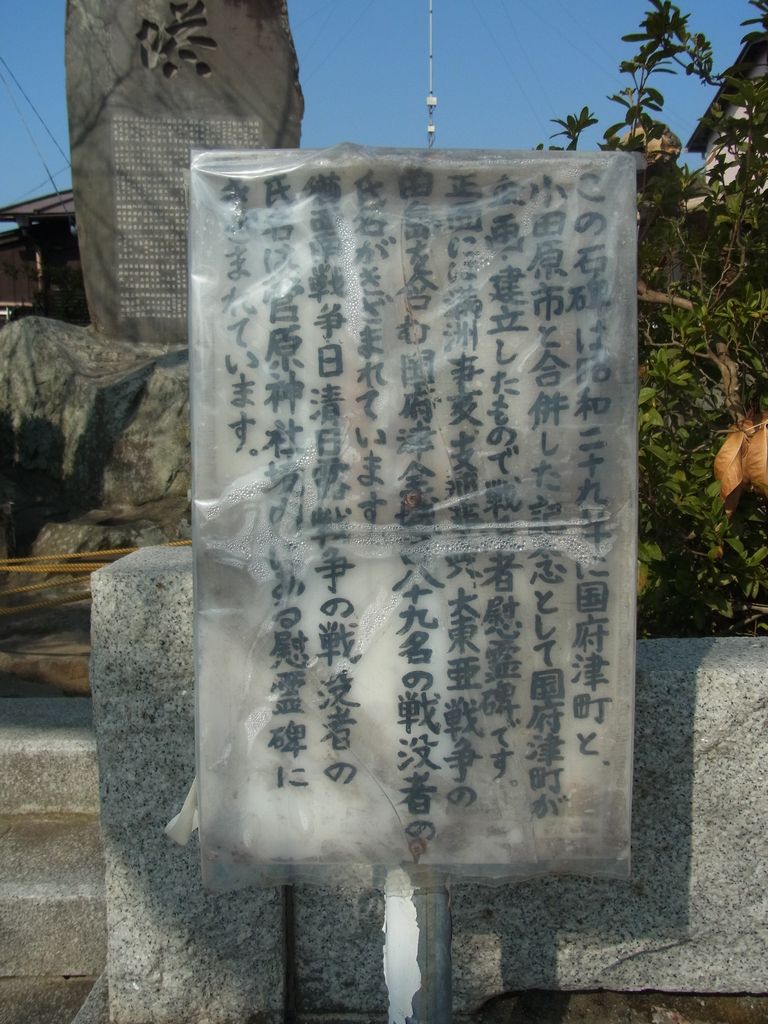 この石碑は昭和二十九年に国府津町と、
小田原市と合併した記念として国府津町が
企画・建立したもので戦没者慰霊碑です。
正面には満洲事変支那事変大東亜戦争の
を含む国府津全 八十九名の戦没者の
氏名がきざまれています
戦争日清日露戦争の戦没者の
氏名は菅原神社 慰霊碑に
きざまれています。